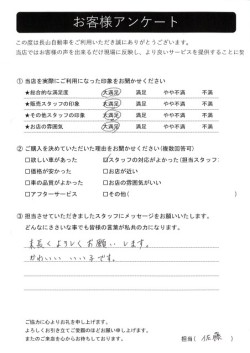 お客様アンケート
この度は長山自動車をご利用いただき誠にありがとうございます。
当店ではお客様の声を出来るだけ現場に反映し、より良いサービスを提供することに努
① 当店を実際にご利用になった印象をお聞かせください
★総合的な満足度 大満足 満足 やや不満 不満
★販売スタッフの印象 大満足 満足 やや不満 不満
★その他スタッフの印象 大満足 満足 やや不満 不満
★お店の雰囲気 大満足 満足 やや不満 不満
② ご購入を決めていただいた理由をお聞かせください(複数回答可)
□欲しい車があった ☑スタッフの対応がよかった (担当スタッフ:
□価格が安かった □お店が近い
□車の品質がよかった □お店の雰囲気がいい
□アフターサービス □その他( )
③ 担当させていただきましたスタッフにメッセージをお願いいたします。
どんなにささいな事でも皆様の言葉が私共の力になります。
末長くよろしくお願いします。
かわいい いい子です。
ご協力に心よりお礼を申し上げます。
よろしくお引き立てご愛顧のほどお願い申し上げます。
またのご来店を心からお待ちしております。
担当( 佐藤 )